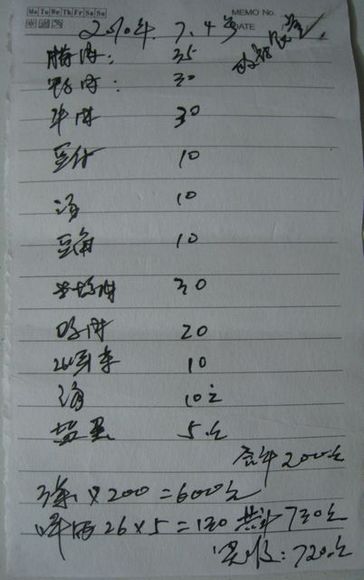 Mo Tu We Th Fr Sa Su MEMO No.
DATE
2010年.7.4号
腊肉: 35
鸭肉: 30
牛肉 30
豆付 10
汤 10
豆角 10
30
20
10
10元
5元
合计200元
3桌×200=600元
啤酒26×5=130 共计730元
实收:720元